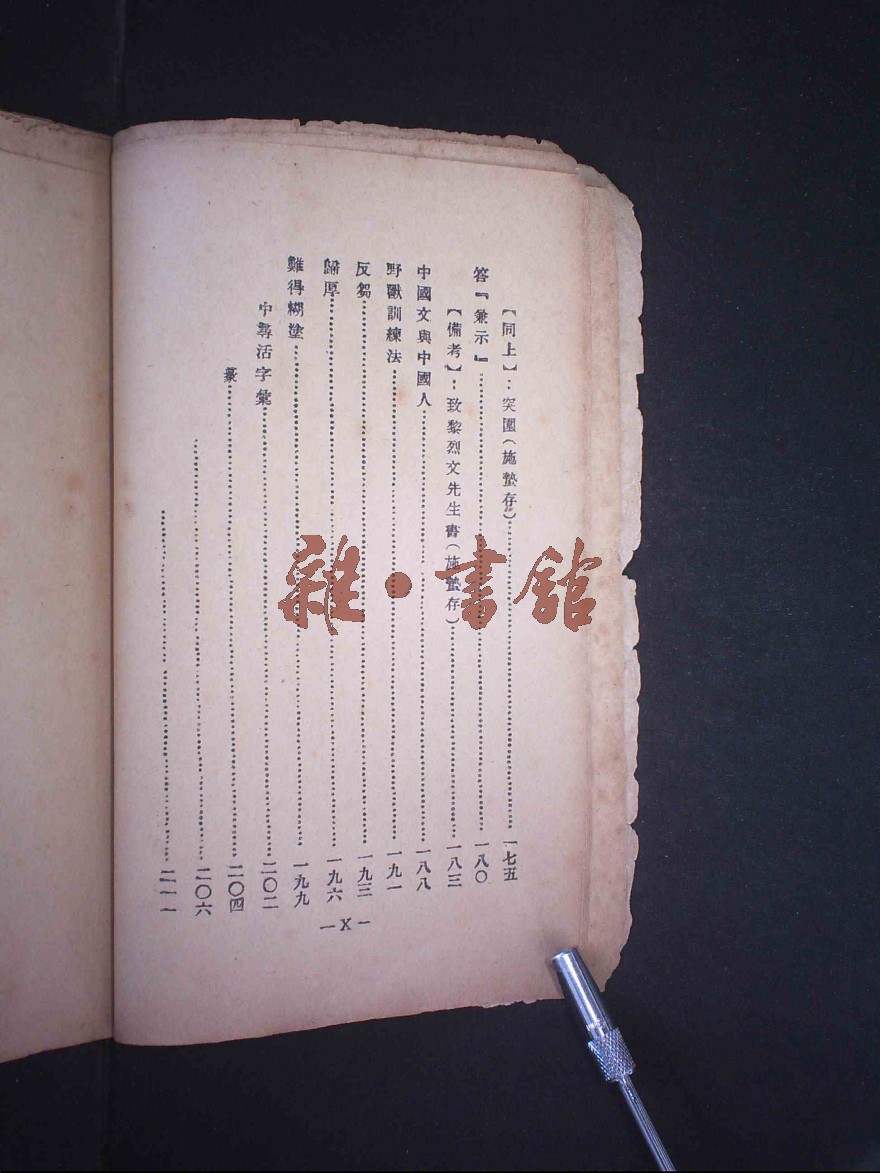 【同上】：突圍（施蟄存）……一七五
答『兼示』……一八〇
【備考】：致黎烈文先生書（施蟄存）……一八三
中國文與中國人……一八八
野獸訓練法……一九一
反芻……一九三
歸厚……一九六
難得糊塗……一九九
中尋活字彙……二〇二
……二〇四
……二〇六
……二一一
—X—
雜·書館